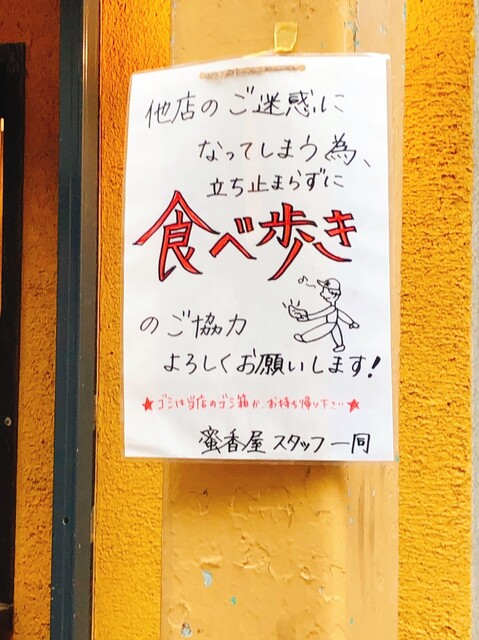 他店のご迷惑に
なってしまう為、
立ち止まらずに
食べ歩き
のご協力
よろしくお願いします!
★ゴミは当店のゴミ箱か、お持ち帰り下さい★
蜜香屋 スタッフ一同